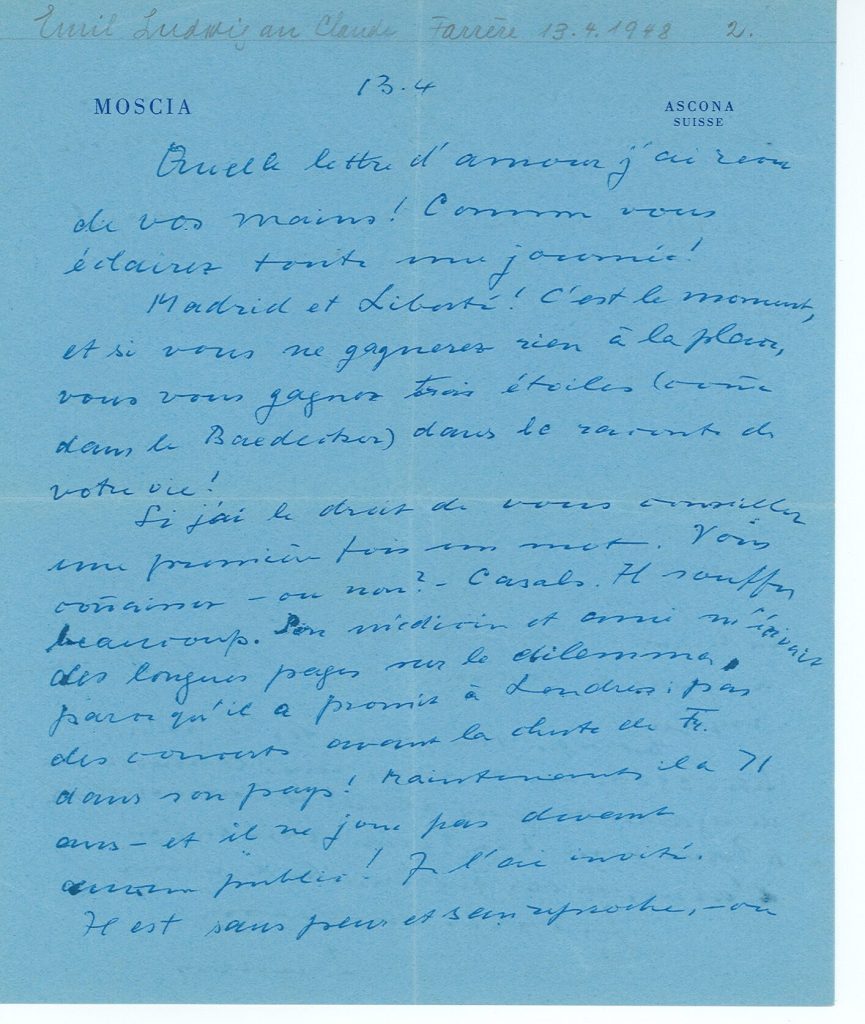 Emil Ludwig an Claude Farrère 13.4.1948 2.
13.4
MOSCIA
ASCONA
SUISSE
Quelle lettre d'amour j'ai recu
de vos mains! Comme vous
éclairez toute une journée!
Madrid et Liberté! C'est le moment,
et si vous ne gagnerez rien à la place,
vous vous gagnez trois étoiles (come
dans le Baedecker) dans le raconte de
votre vie!
Si j'ai le droit de vous conseiller
une première fois un mot. Vous
conaissez - ou non? - Casals. Il souffre
beaucoup. Son médicin et ami m'écrivait
des longues pages sur le dilemma,
parce qu'il a promit à Londres: pas
des concerts avant la chute de Fr.
dans son pays! Maintenants il a 71
ans - et il ne joue pas devant
aucun public! Je l'ai invité.
Il est sans peur et sans reproche, - ou